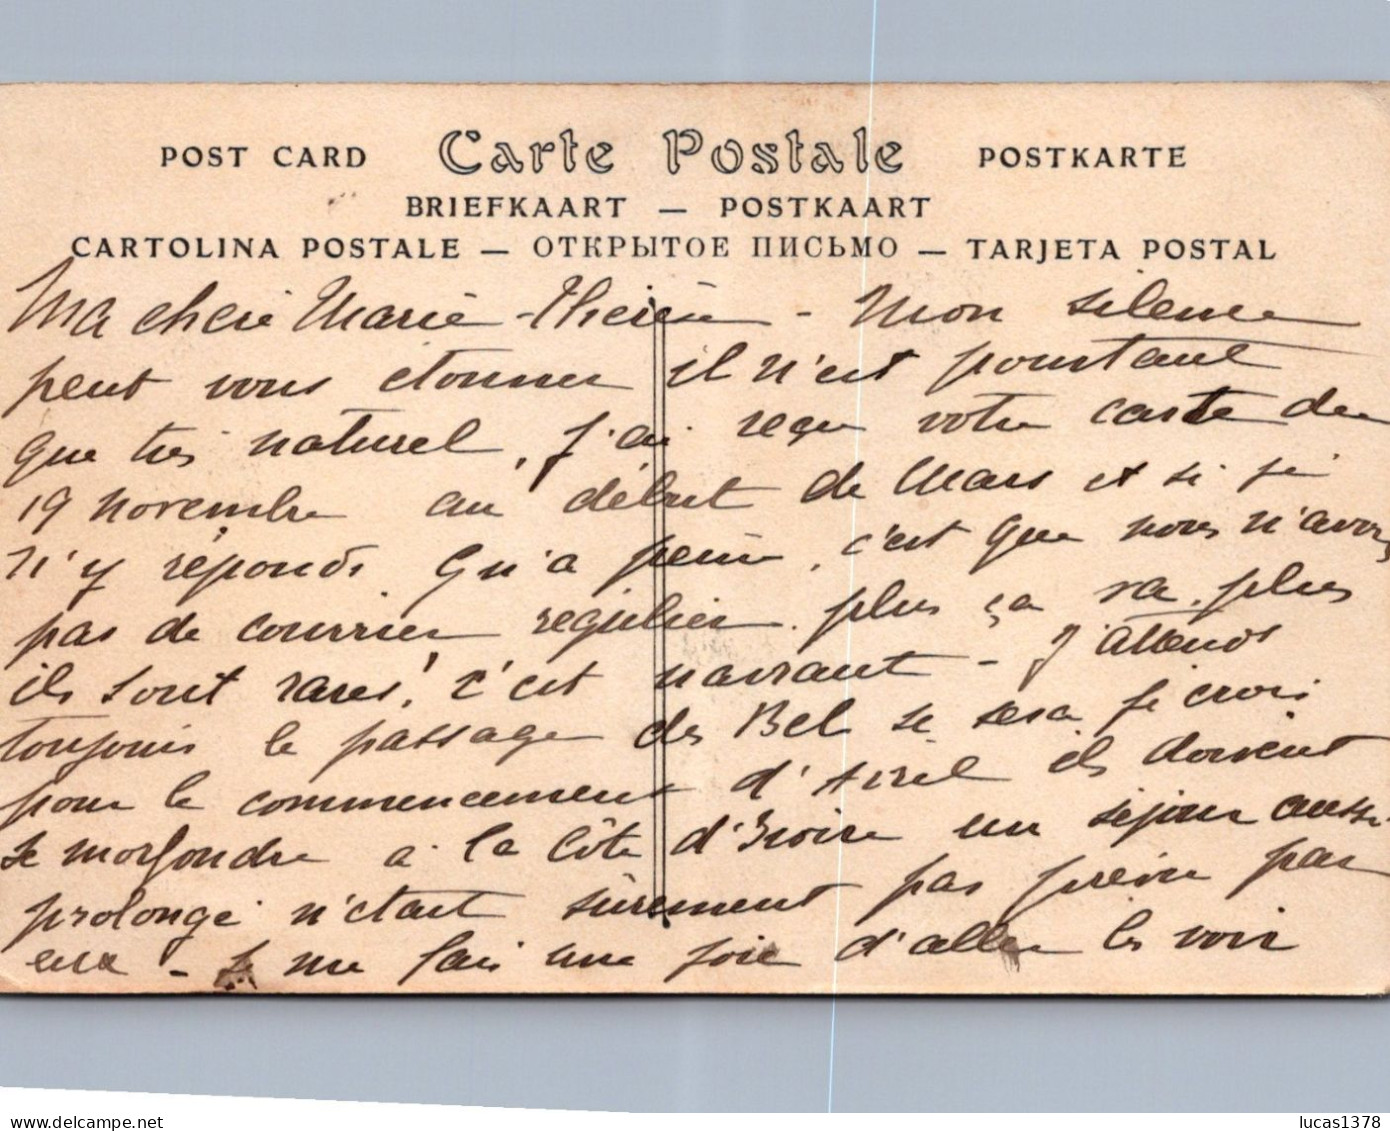 POST CARD Carte Postale POSTKARTE
BRIEFKAART — POSTKAART
CARTOLINA POSTALE — ОТКРЫТОЕ ПИСЬМО — TARJETA POSTAL
Ma chère Marie-Thérèse - Mon silence
peut vous étonner il n'est pourtant
que très naturel, J'ai reçu votre carte du
19 novembre au début de Mars et si je
n'y réponds qu'à peine, c'est que nous n'avons
pas de courrier régulier. plus ça va, plus
ils sont rares! c'est navrant - J'attends
toujours le passage des Bel se sera je crois
pour le commencement d'Avril ils doivent
se morfondre à la Côte d'Ivoire un séjour aussi
prolongé n'était sûrement pas prévu par
eux - Je me fais une joie d'aller les voir
www.delcampe.net
lucas1378